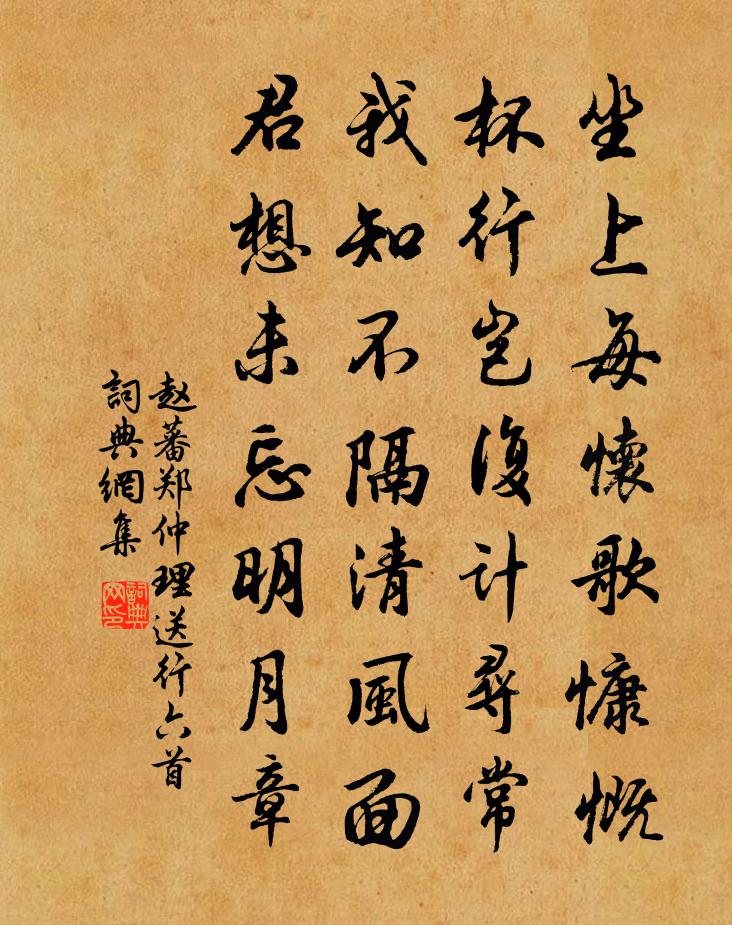 坐上每懷歌慷慨
杯行岂復计尋常
我知不隔清風面
君想未忘明月章
赵蕃郑仲理送行六首
詞典網集
詞典网印